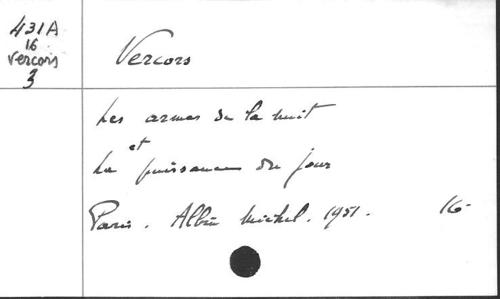 431A
16
Vercors
3
Vercors
Les armes de la nuit
et
La puissance du jour
Paris. Albin Michel. 1951. 16-